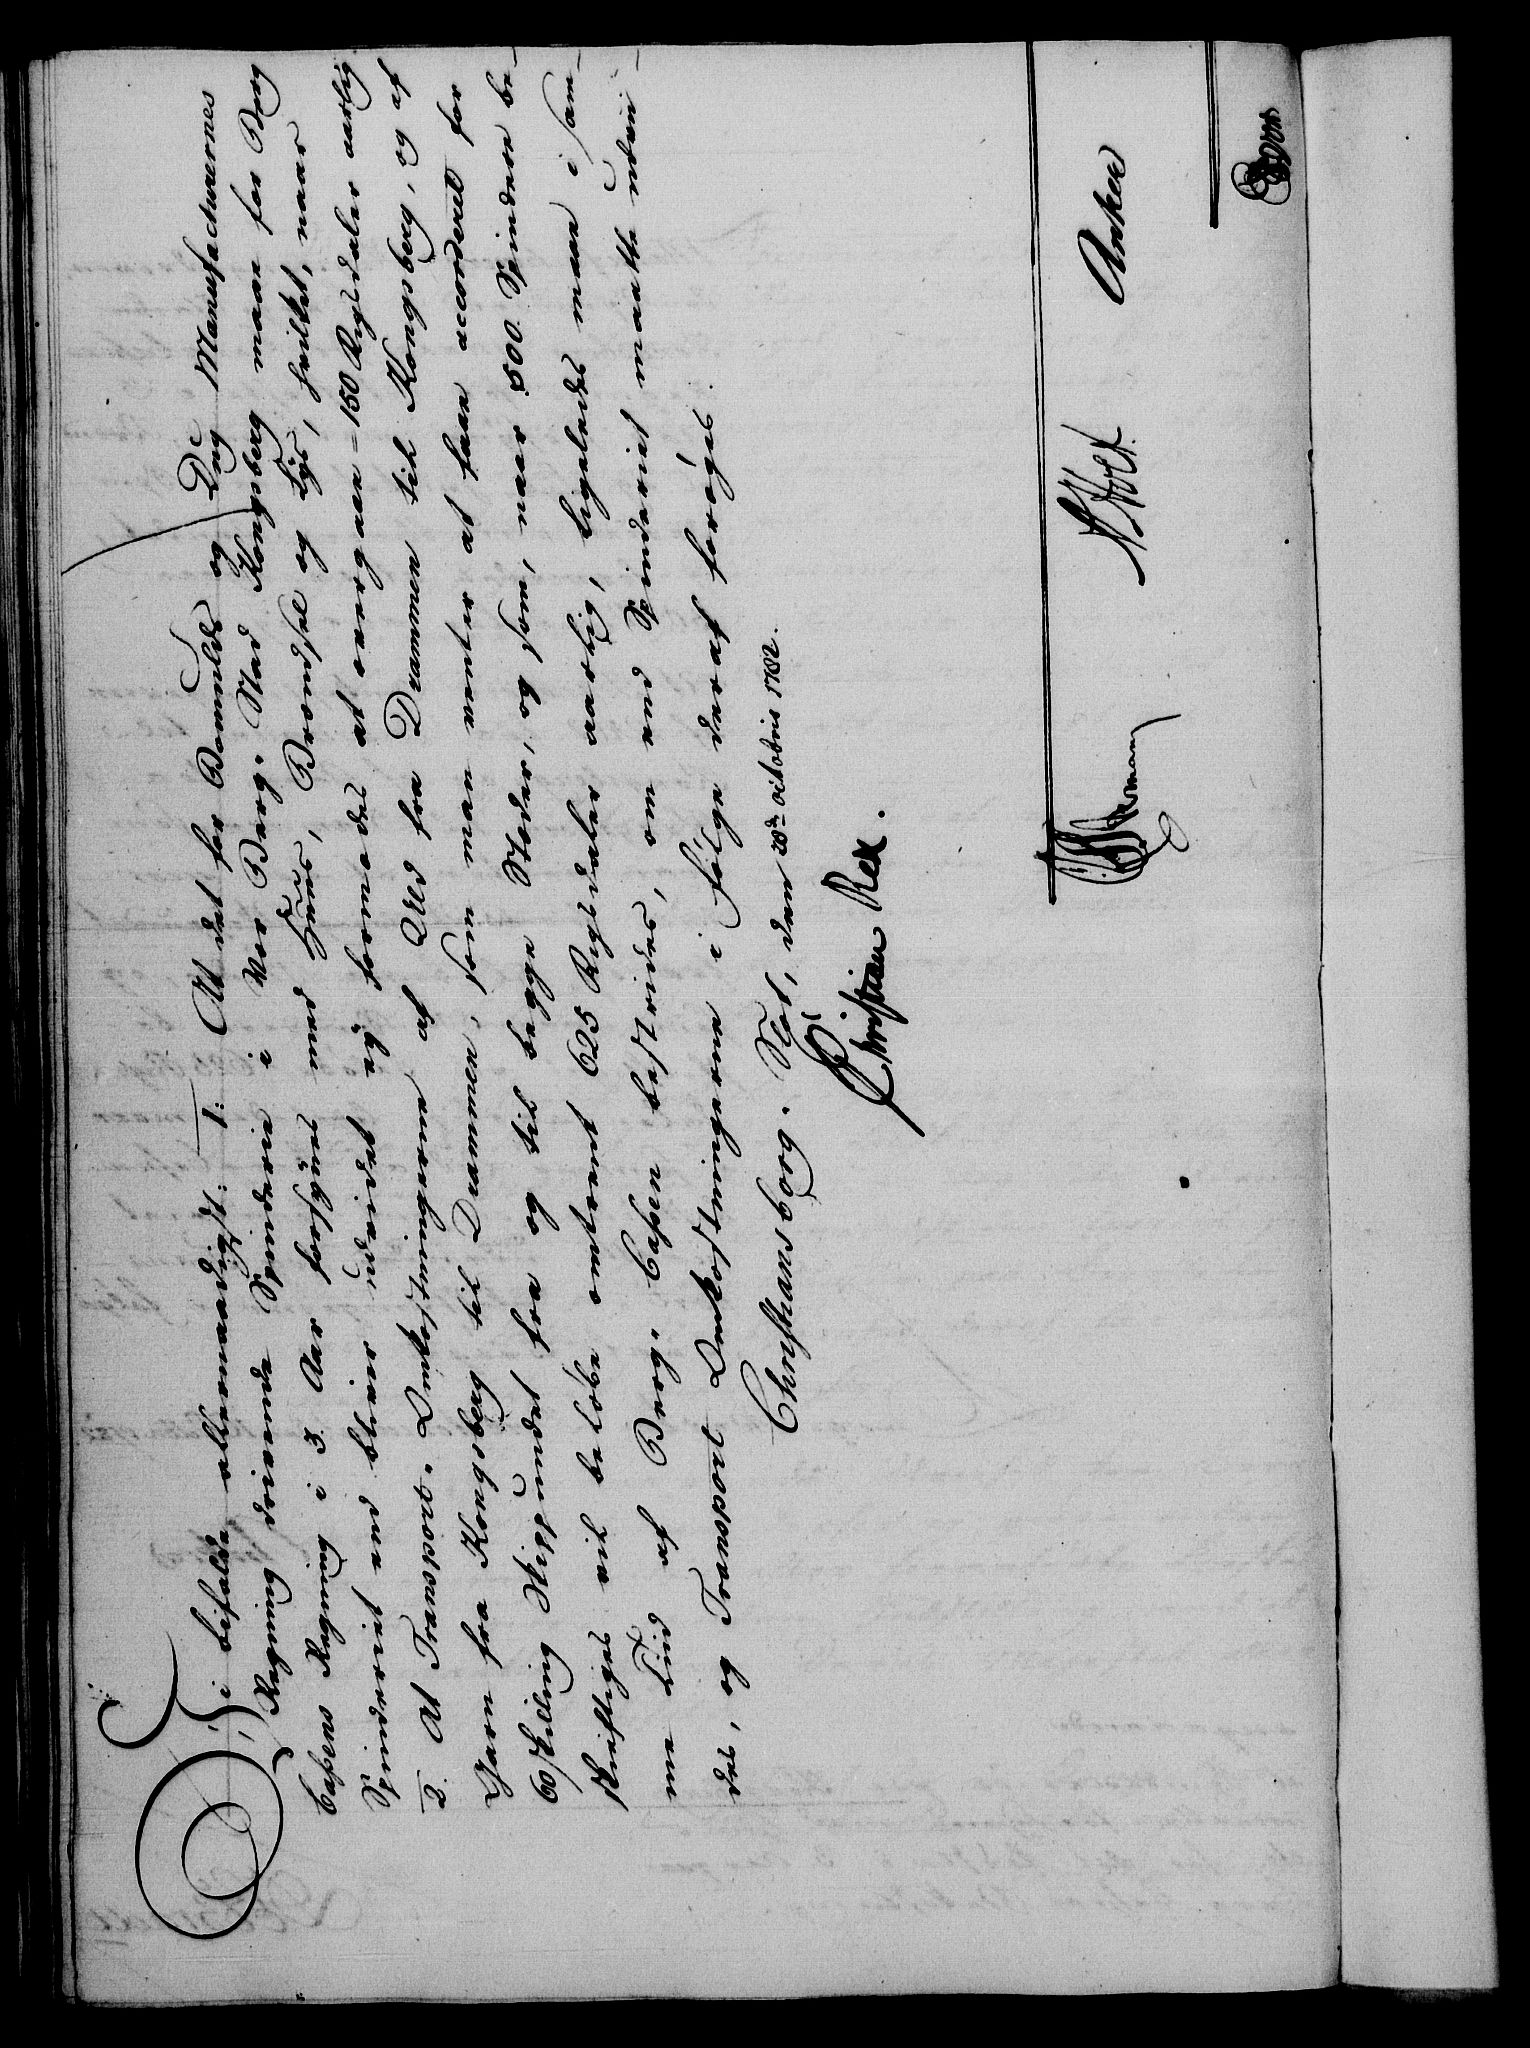 Vi bifalde allernaadigst: 1: At det for Bomulds og Dug Manufacturernes
Regning drivende Spinderie i Vor Berg- Stad Kongsberg maae for Berg
Caßens Regning i 3 Aar forsÿnes med Huus, Brændsel og Lÿs, hvilket, naar
Spinderiet end bliver udvidet eÿ formodes at overgaae - 150 Rigsdaler aarlig
2. At Transport- Omkostningerne af Uld fra Drammen til Kongsberg, og af
Garn fra Kongsberg til Drammen, som man venter at faae accorderet for
60 skilling Skippundet fra og til begge Steder, og som, naar 500 Spindere be-
skieftiges vil beløbe omtrent 625 Rigsdaler aarlig, ligeledes maae i sam-
me Tiid af Berg- Caßen bestrides, om end Spinderiet maatte udvi-
des, og Transport Omkostningerne i følge deraf forøges.
Christiansborg- Slot, den 28de octobris 1782.
Christian Rex.
Holt Anker